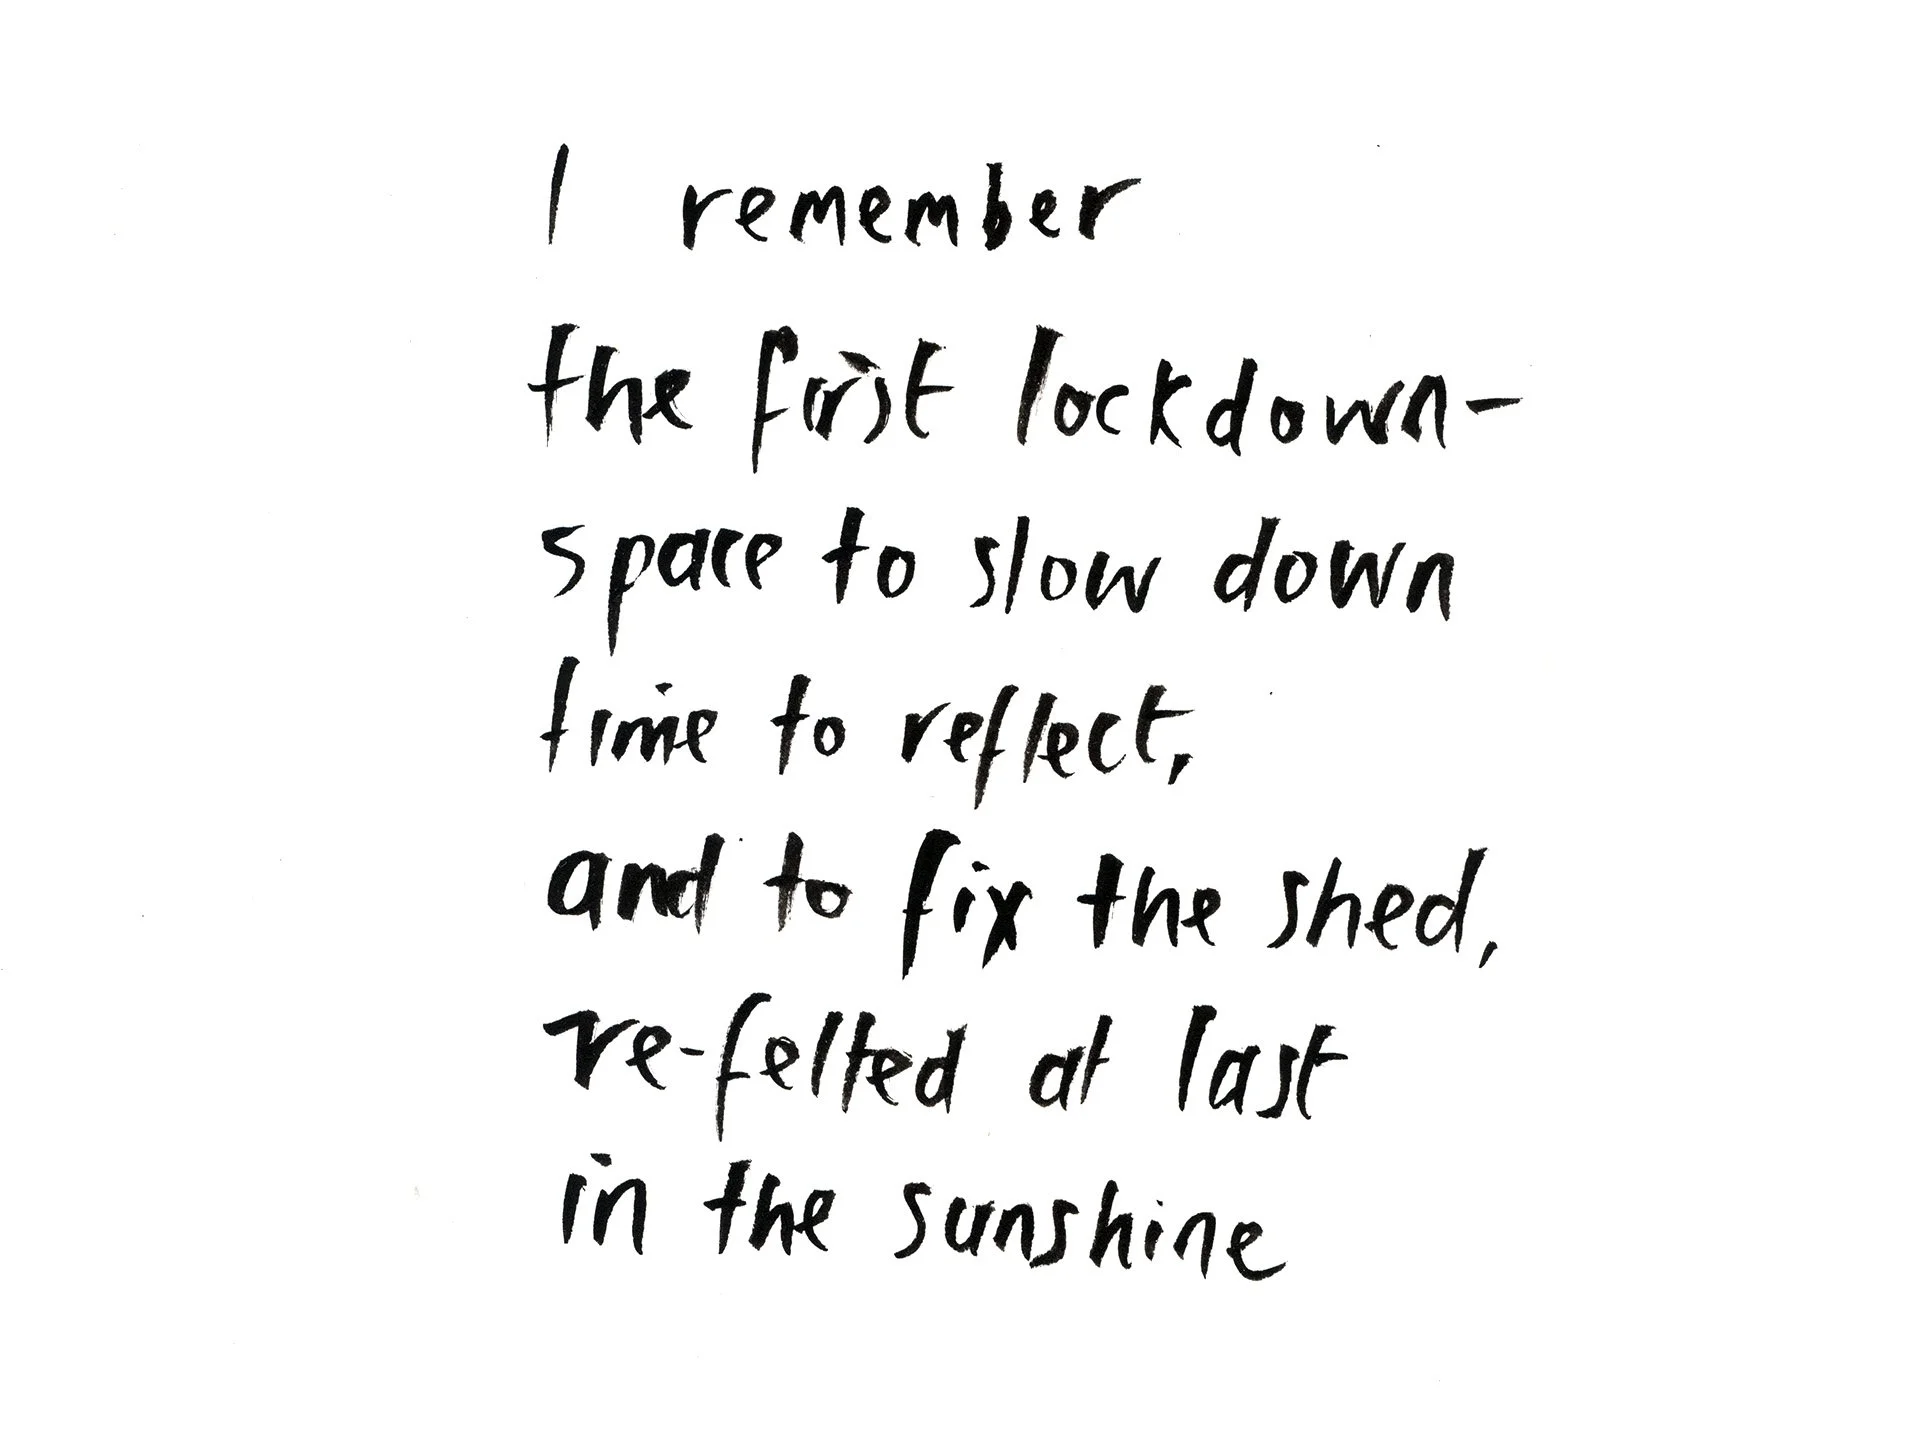 I remember
the first lockdown-
space to slow down
time to reflect,
and to fix the shed,
re-felted at last
in the sunshine